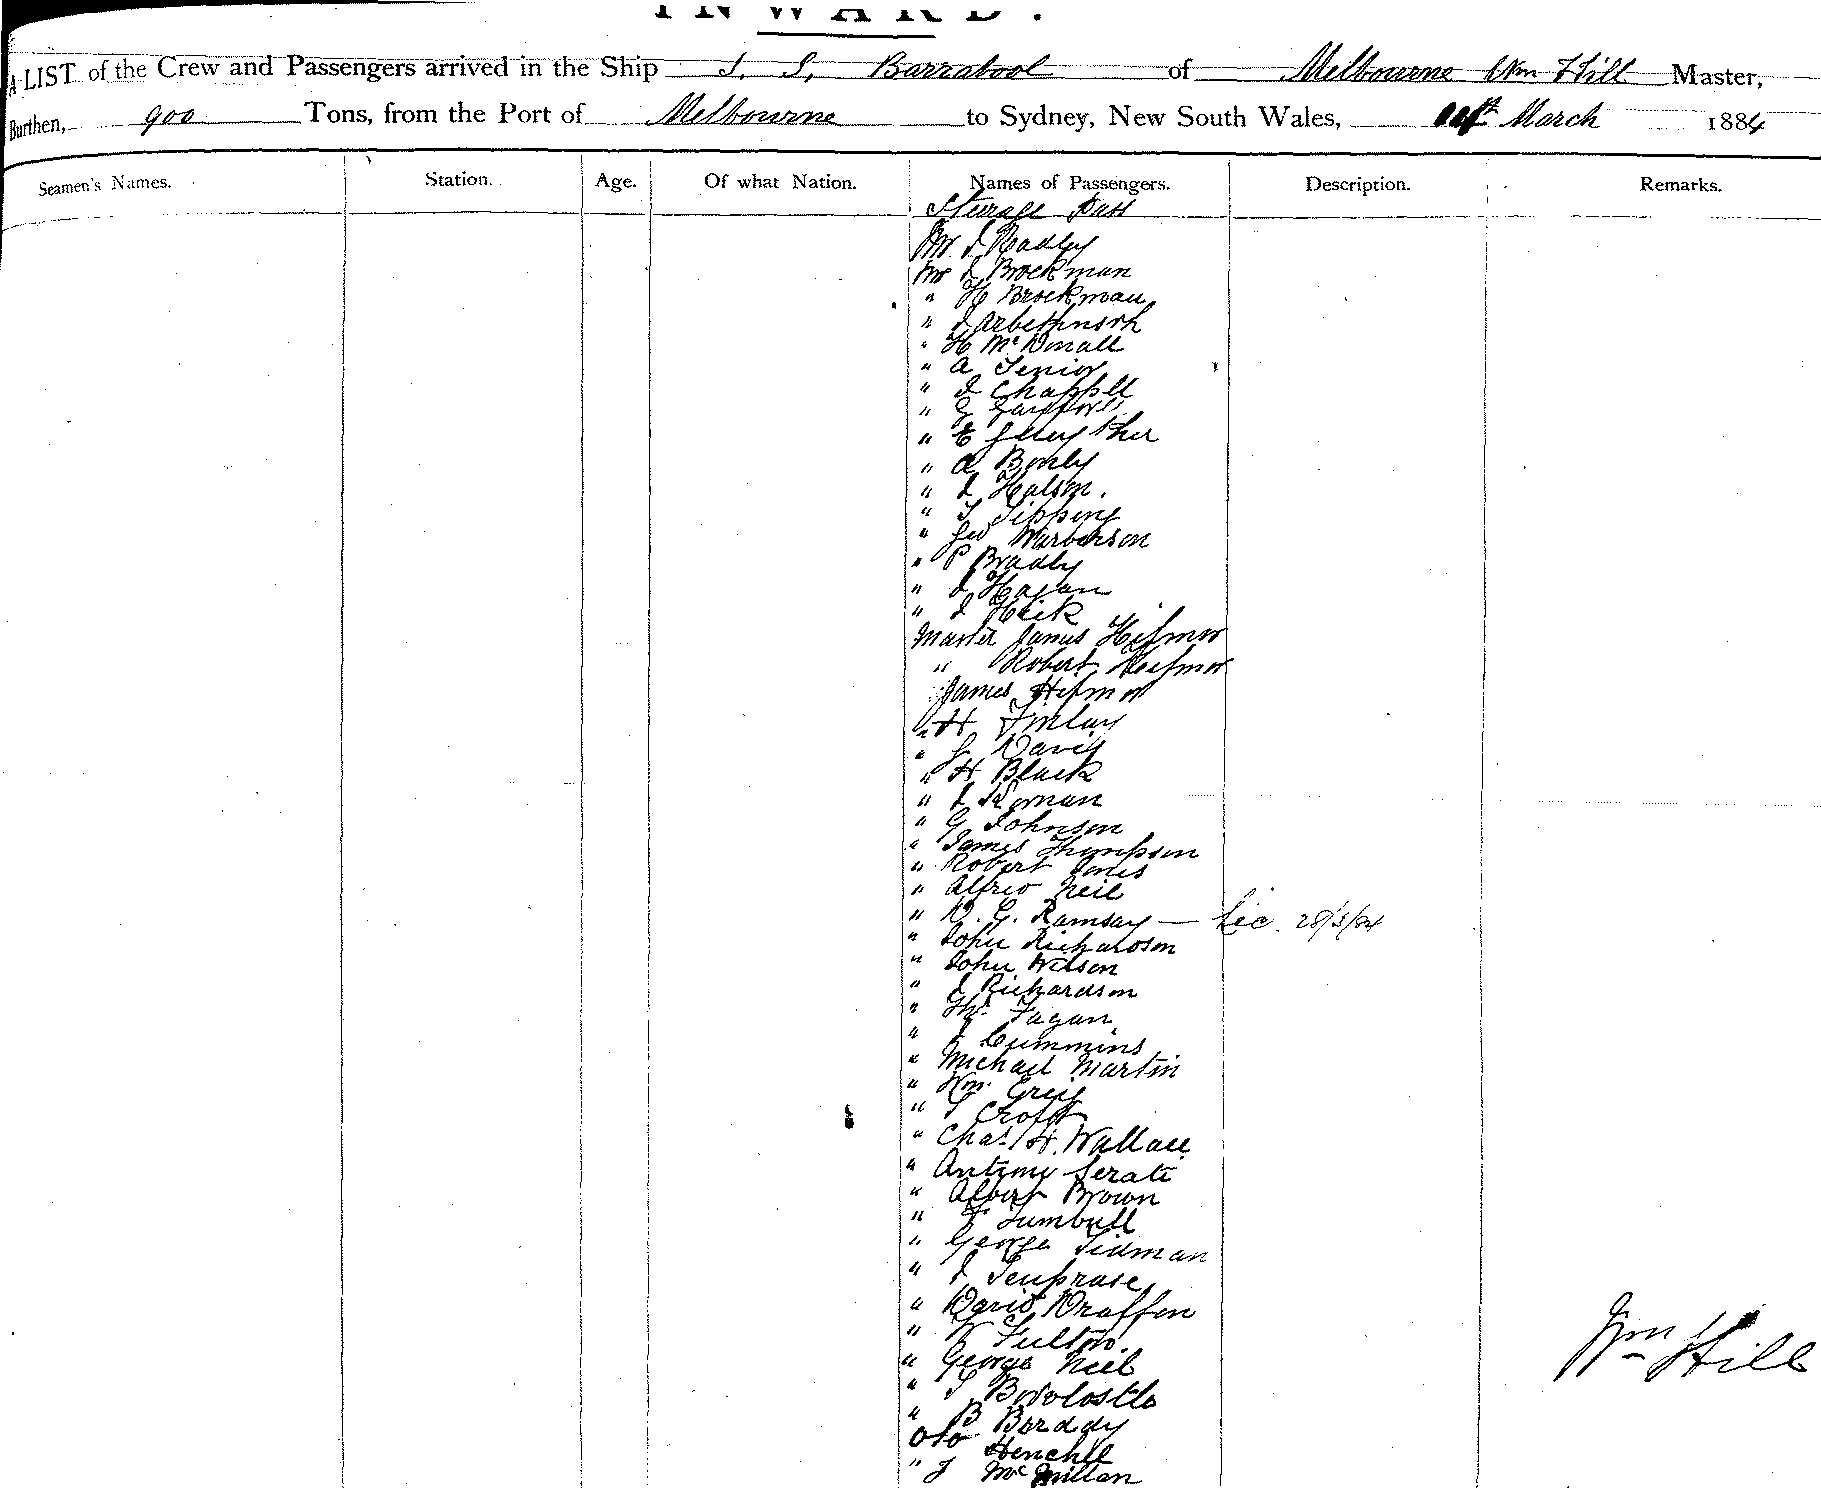 INWARD.
A LIST of the Crew and Passengers arrived in the Ship S. S. Barrabool of Melbourne Wm Hill Master,
Burthen, 900 Tons, from the Port of Melbourne to Sydney, New South Wales, March 1884
Seamen's Names. Station. Age. Of what Nation. Names of Passengers. Description. Remarks.
Sturage Pass
Mr J Radley
Mr J Brockman
" H Brockman
" J Arbethnoth
" H Mc Donall
" A Senior
" J Chappll
" G
" E
" A Bonly
" J Halson.
" T Tipping
" Geo Warberson
" P Bradly
" J Hagan
" J Heik
Master James
" Robert
James
" H Finlay
" J Davis
" H Black
" J
" G Johnson
" James Thompson
" Robert Jones
" Alfred Neil
" D. G. Ramsay — Lic. 28/3/84
" John Richardson
" John Wilson
" J Richardson
" Fagan
" J Cummins
" Michael Martin
" Wm. Greig
" T Croft
" Chas. H. Wallace
" Antony Serati
" Albert Brown
" F Turnbull
" George Tidman
" J
" David Draffen
" Fulton.
" George Neil
" T
" B Borddy
Otto Henchll
" J McMillan
Wm Hill